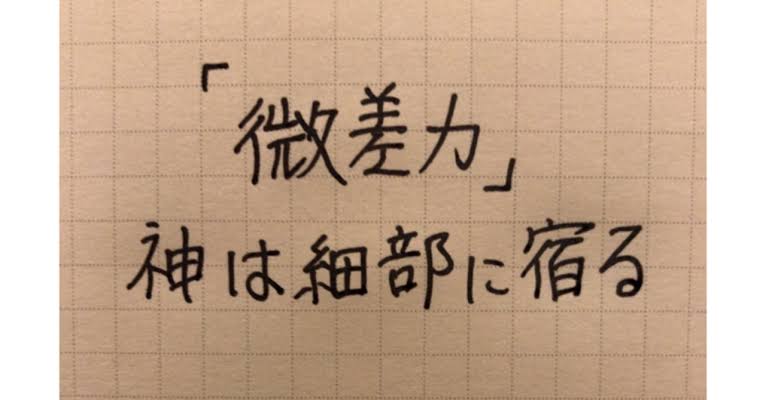 「微差力」
神は細部に宿る